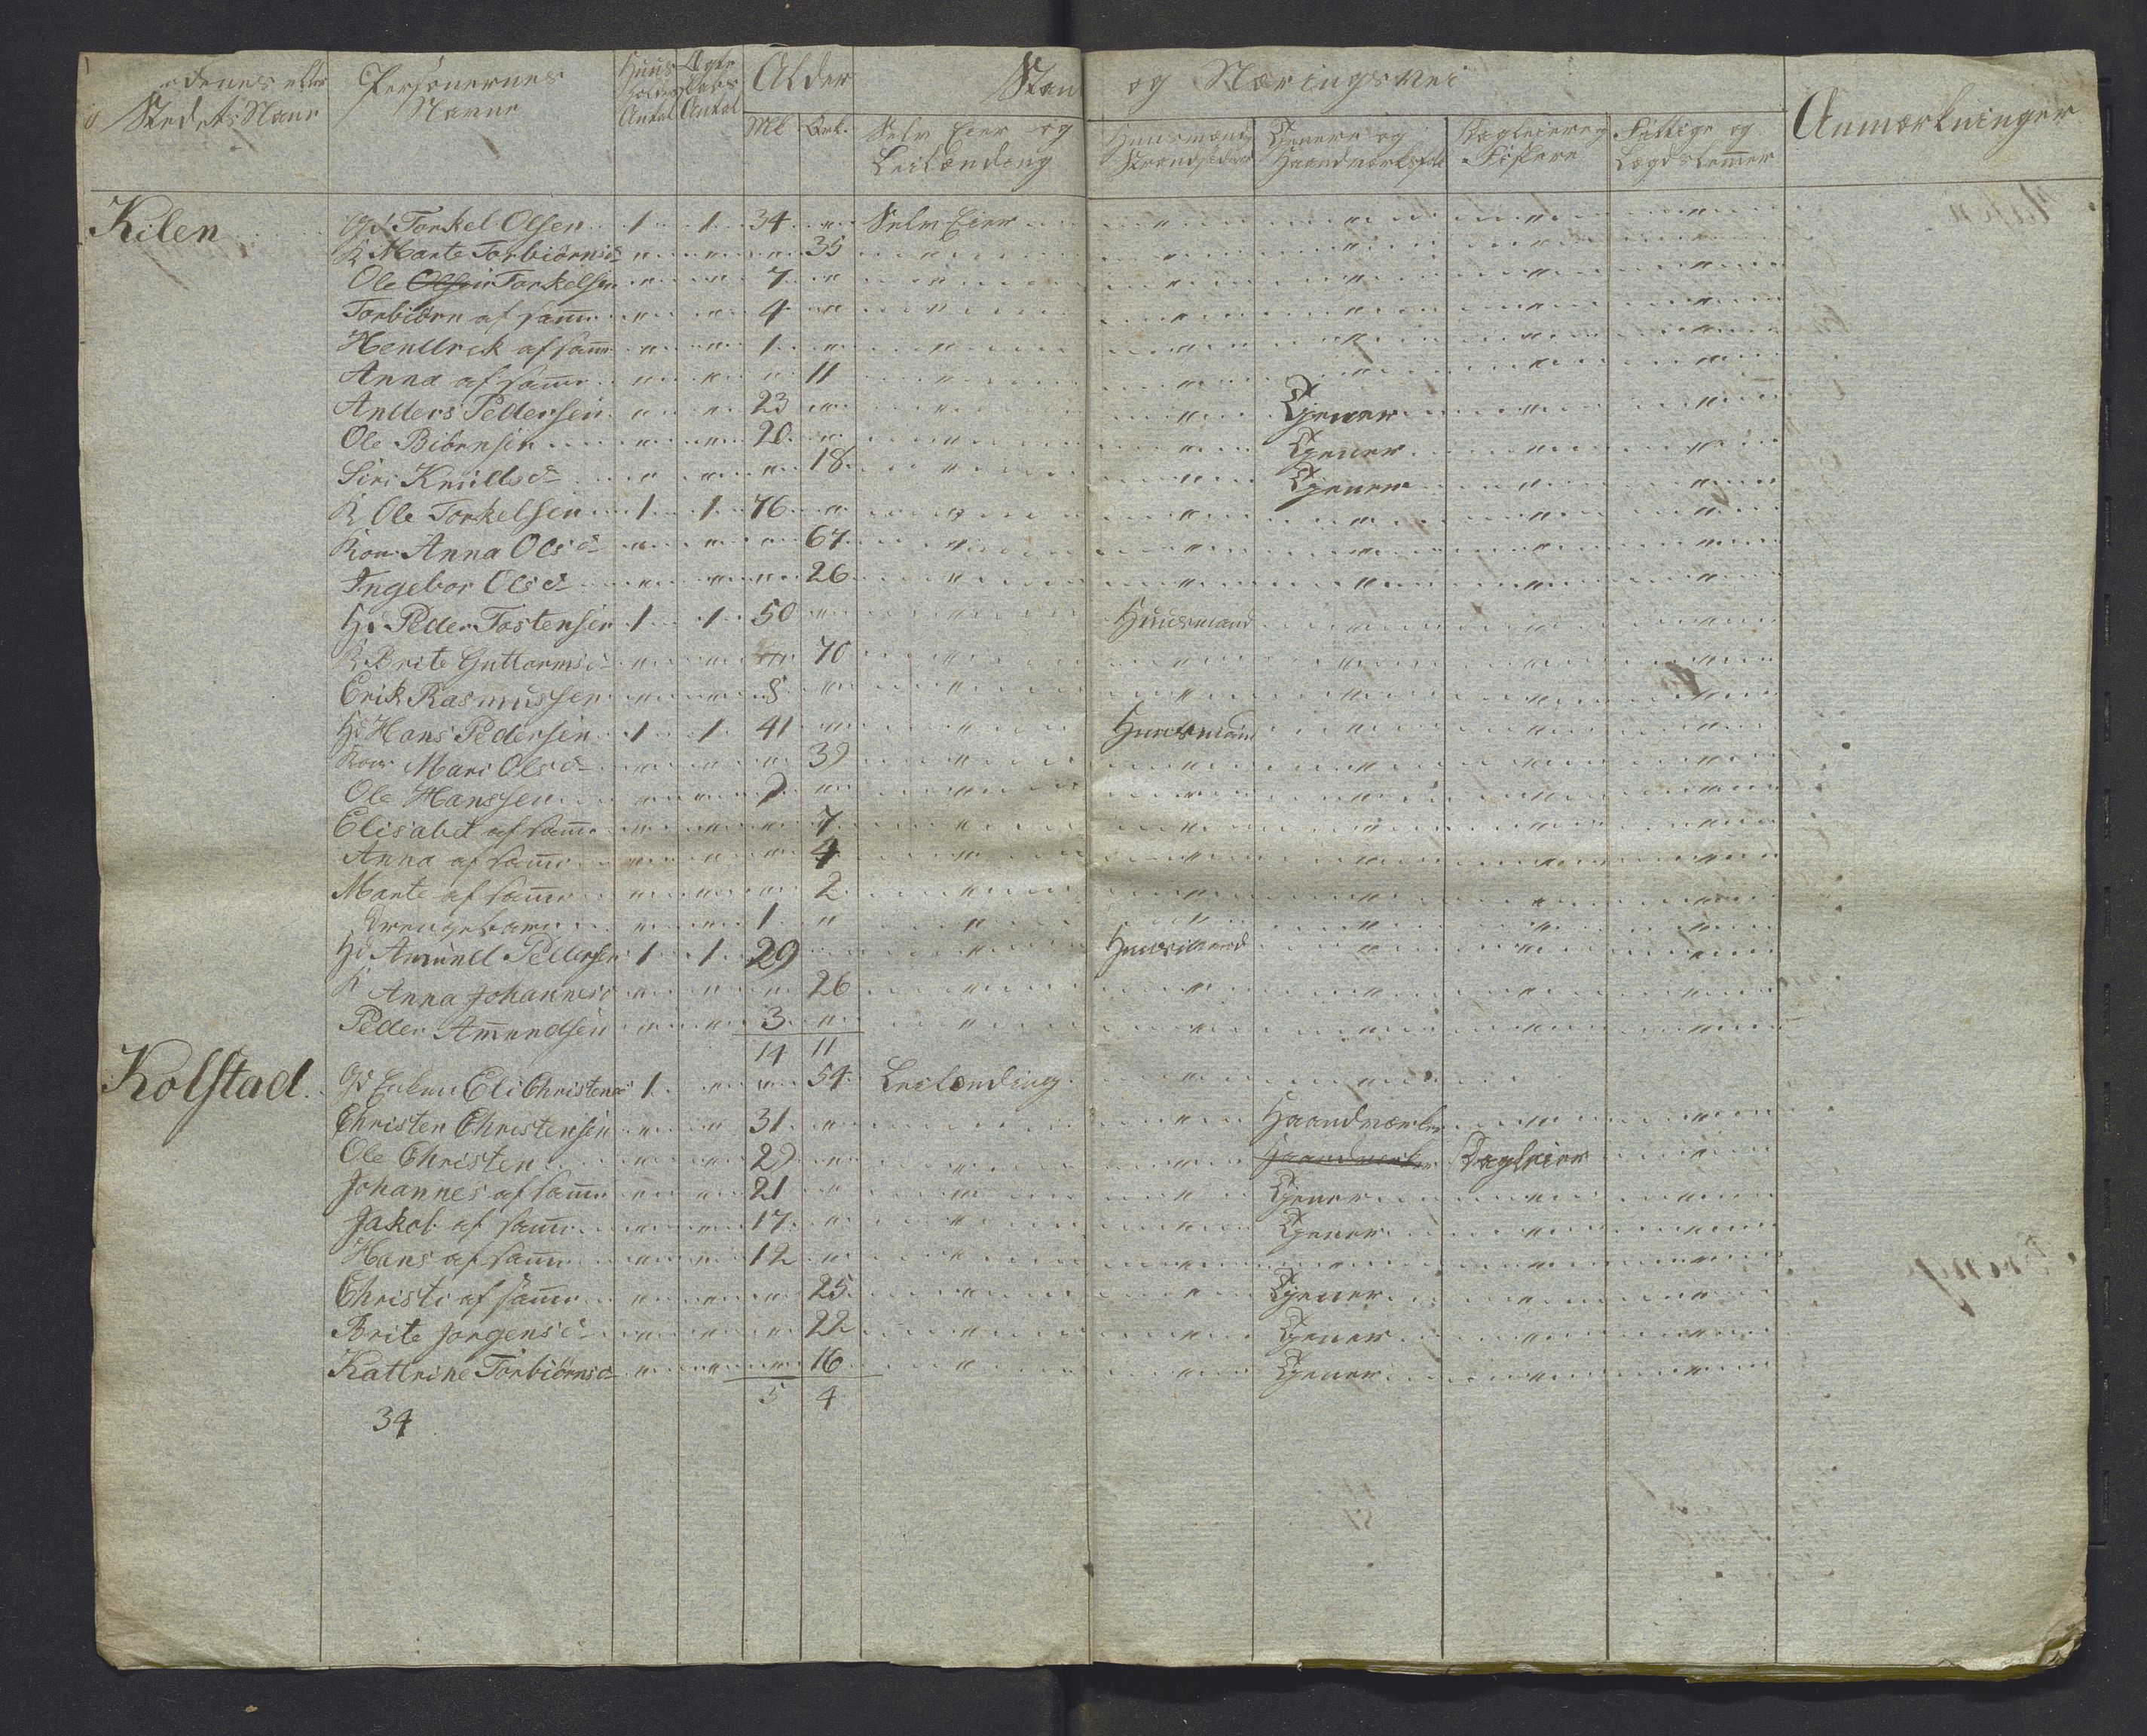 Stedets Navn | Personernes Navne | Huus holdn Antal | Ægte Pars Antal | Alder | Stand og Næringsvei | Anmærkninger
Mk | Qvk. | Selv Eier og Leilænding | Huusmænd Strandsidder | Tjenere og Haandværksfolk | Dagleiere og Fiskere | Fattige og Lægdslemmer
Kilen | Gd Torkel Olsen | 1 | 1 | 34 | " | Selv Eier
K Marte Torbiörnsd | " | " | " | 35
Ole Olsen Torkelsen | " | " | 7 | "
Torbiörn af samme | " | " | 4 | "
Hendrick af samme | " | " | 1 | "
Anna af samme | " | " | " | 11
Anders Pedersen | " | " | 23 | " | Tjener
Ole Biörnsen | " | " | 20 | " | Tjener
Siri Knudsd | " | " | " | 18 | Tjener
K Ole Torkelsen | 1 | 1 | 76 | "
Kone Anna Olsd | " | " | " | 67
Ingebor Olsd | " | " | " | 26
Hd Peder Tostensen | 1 | 1 | 50 | " | Huusmand
K Brite Guttormsd | " | " | " | 70
Erik Rasmussen | " | " | 8 | "
Hd Hans Pedersen | 1 | 1 | 41 | " | Huusmand
Kone Mari Olsd | " | " | " | 39
Ole Hanssen | " | " | 9 | "
Elisabet af samme | " | " | " | 7
Anna af samme | " | " | " | 4
Marte af samme | " | " | " | 2
Drengebarn | " | " | 1 | "
Hd Amund Pedersen | 1 | 1 | 29 | Huusmand
K Anna Johannesd | " | " | " | 26
Peder Amundsen | " | " | 3 | "
14 | 11
Kolstad | Gd Enken Eli Christensd | 1 | " | " | 54 | Leilænding
Christen Christensen | " | " | 31 | " | Haandværker
Ole Christen | " | " | 29 | " | Haandværker | Dagleier
Johannes af samme | " | " | 21 | " | Tjener
Jakob af samme | " | " | 17 | " | Tjener
Hans af samme | " | " | 12 | "
Christi af samme | " | " | " | 25 | Tjener
Brite Jörgensd | " | " | " | 22 | Tjener
Kattrine Torbiörnsd | " | " | " | 16 | Tjener
5 | 4
34